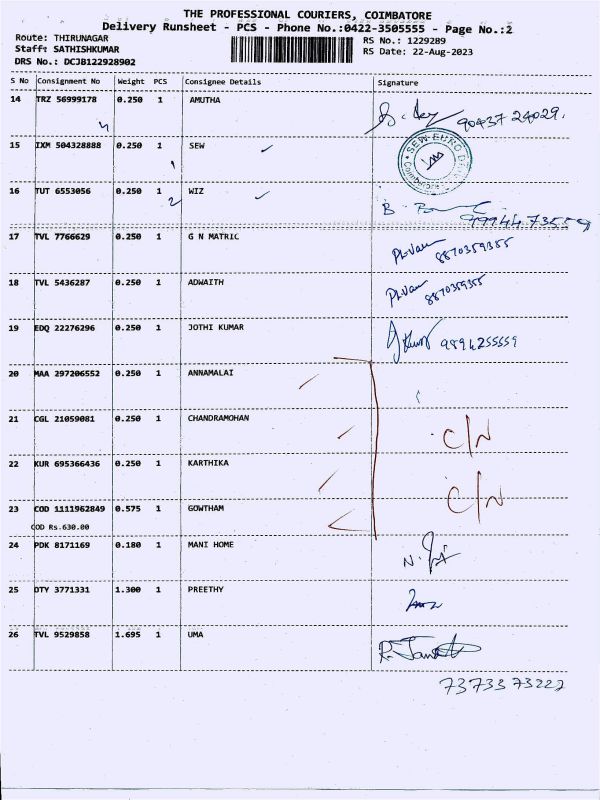 THE PROFESSIONAL COURIERS, COIMBATORE
Delivery Runsheet - PCS - Phone No.:0422-3505555 - Page No.:2
Route: THIRUNAGAR
Staff: SATHISHKUMAR
DRS No.: DCJB122928902
RS No.: 1229289
RS Date: 22-Aug-2023
S No Consignment No Weight PCS Consignee Details Signature
14 TRZ 56999178 0.250 1 AMUTHA
90437 24029.
15 IXM 504328888 0.250 1 SEW
SEW EURO D
Coimbatore
16 TUT 6553056 0.250 1 WIZ
99944 73559
17 TVL 7766629 0.250 1 G N MATRIC
8870359355
18 TVL 5436287 0.250 1 ADWAITH
8870359355
19 EDQ 22276296 0.250 1 JOTHI KUMAR
9894255559
20 MAA 297206552 0.250 1 ANNAMALAI
21 CGL 21059081 0.250 1 CHANDRAMOHAN C/N
22 KUR 695366436 0.250 1 KARTHIKA C/N
23 COD 1111962849 0.575 1 GOWTHAM
COD Rs.630.00
24 PDK 8171169 0.180 1 MANI HOME
25 DTY 3771331 1.300 1 PREETHY
26 TVL 9529858 1.695 1 UMA
73733 73222